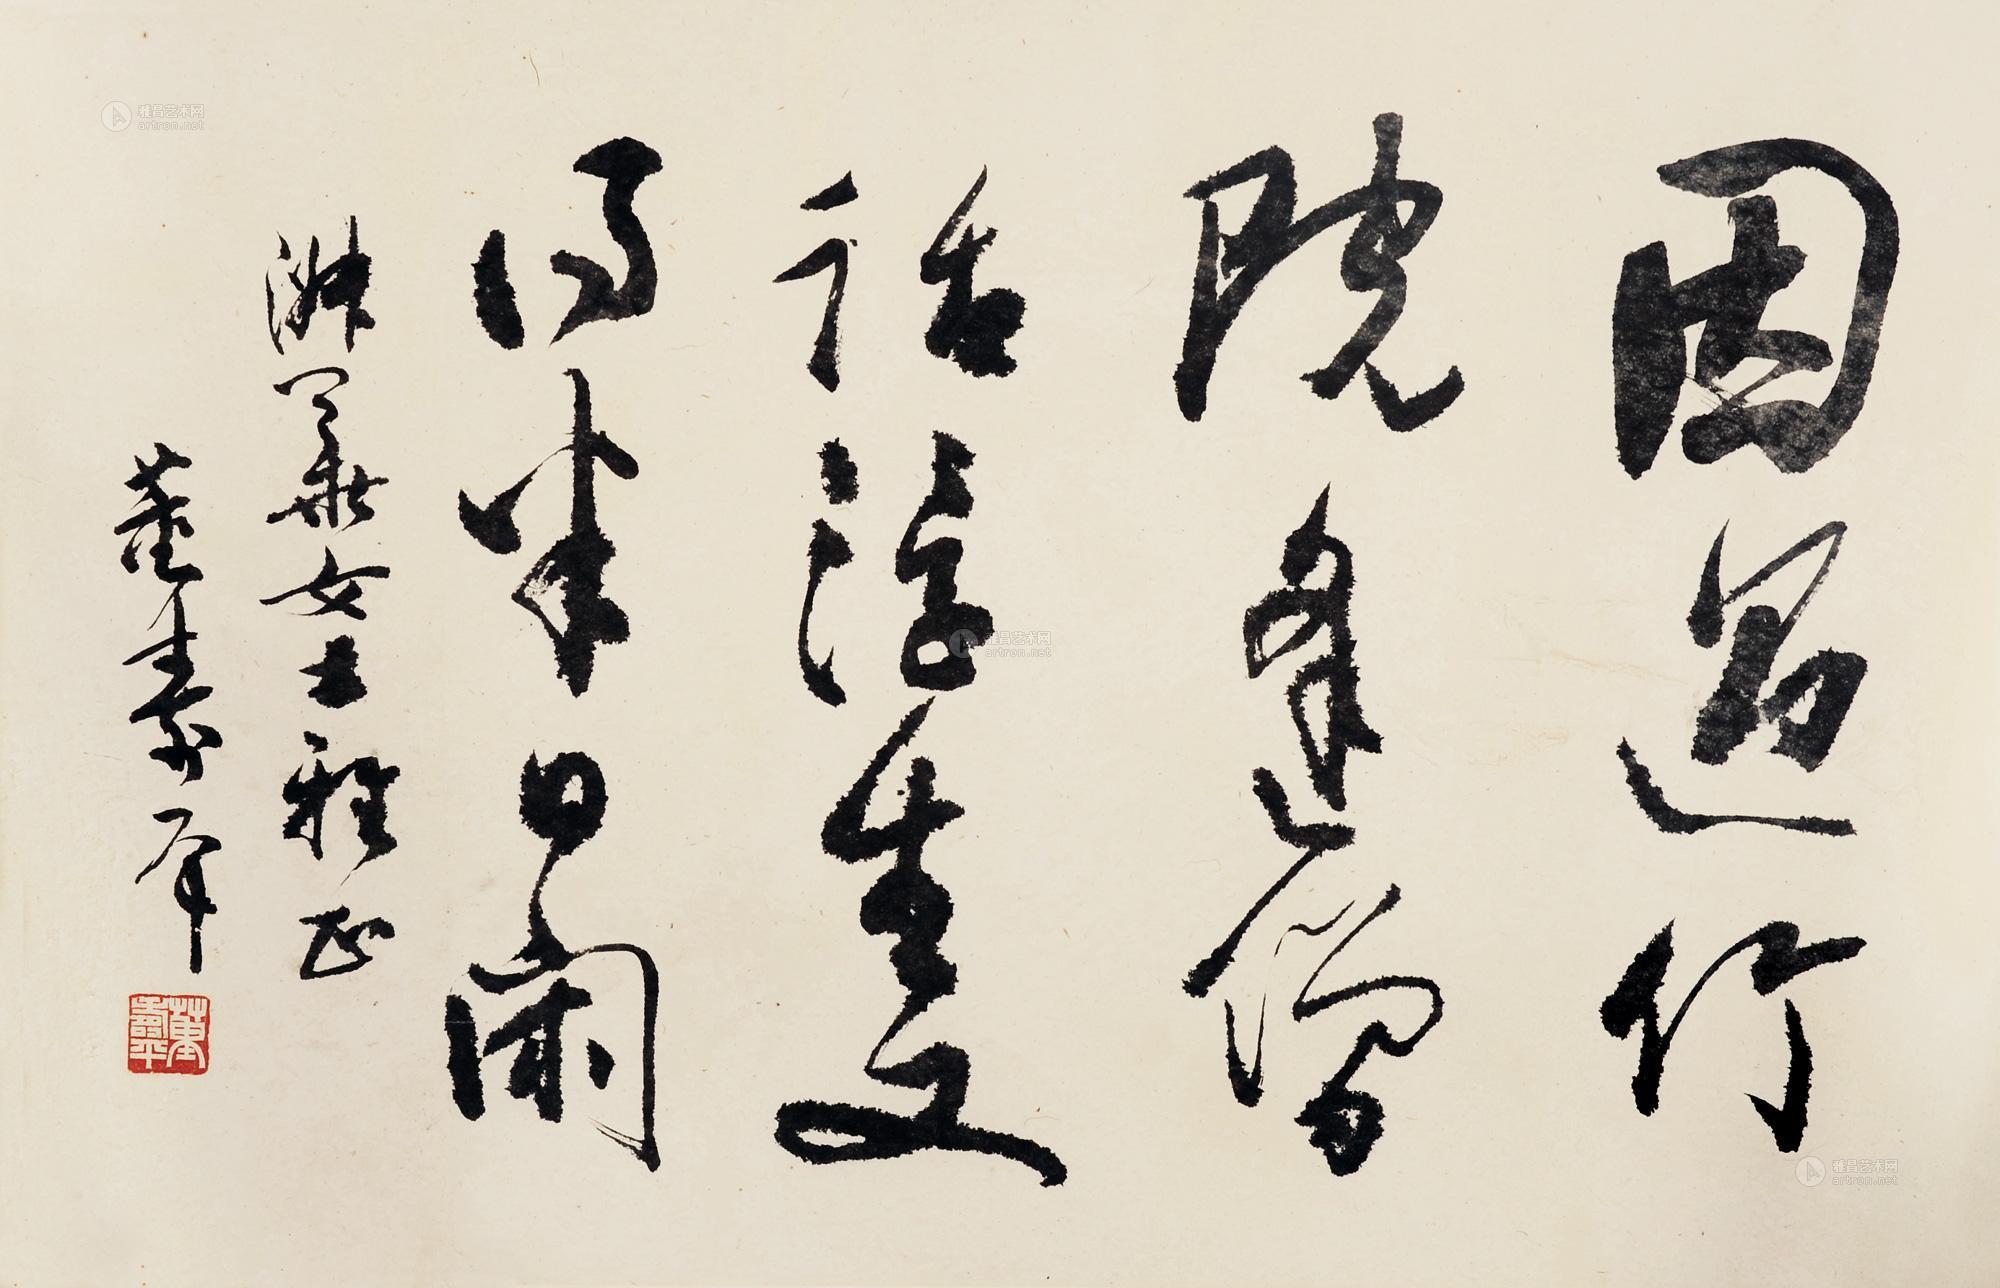 因過竹
院逢僧
話浮生又
得半日閑
淑華女士雅正
董壽平
董壽平
雅昌艺术网
artron.net
雅昌艺术网
artron.net
雅昌艺术网
artron.net